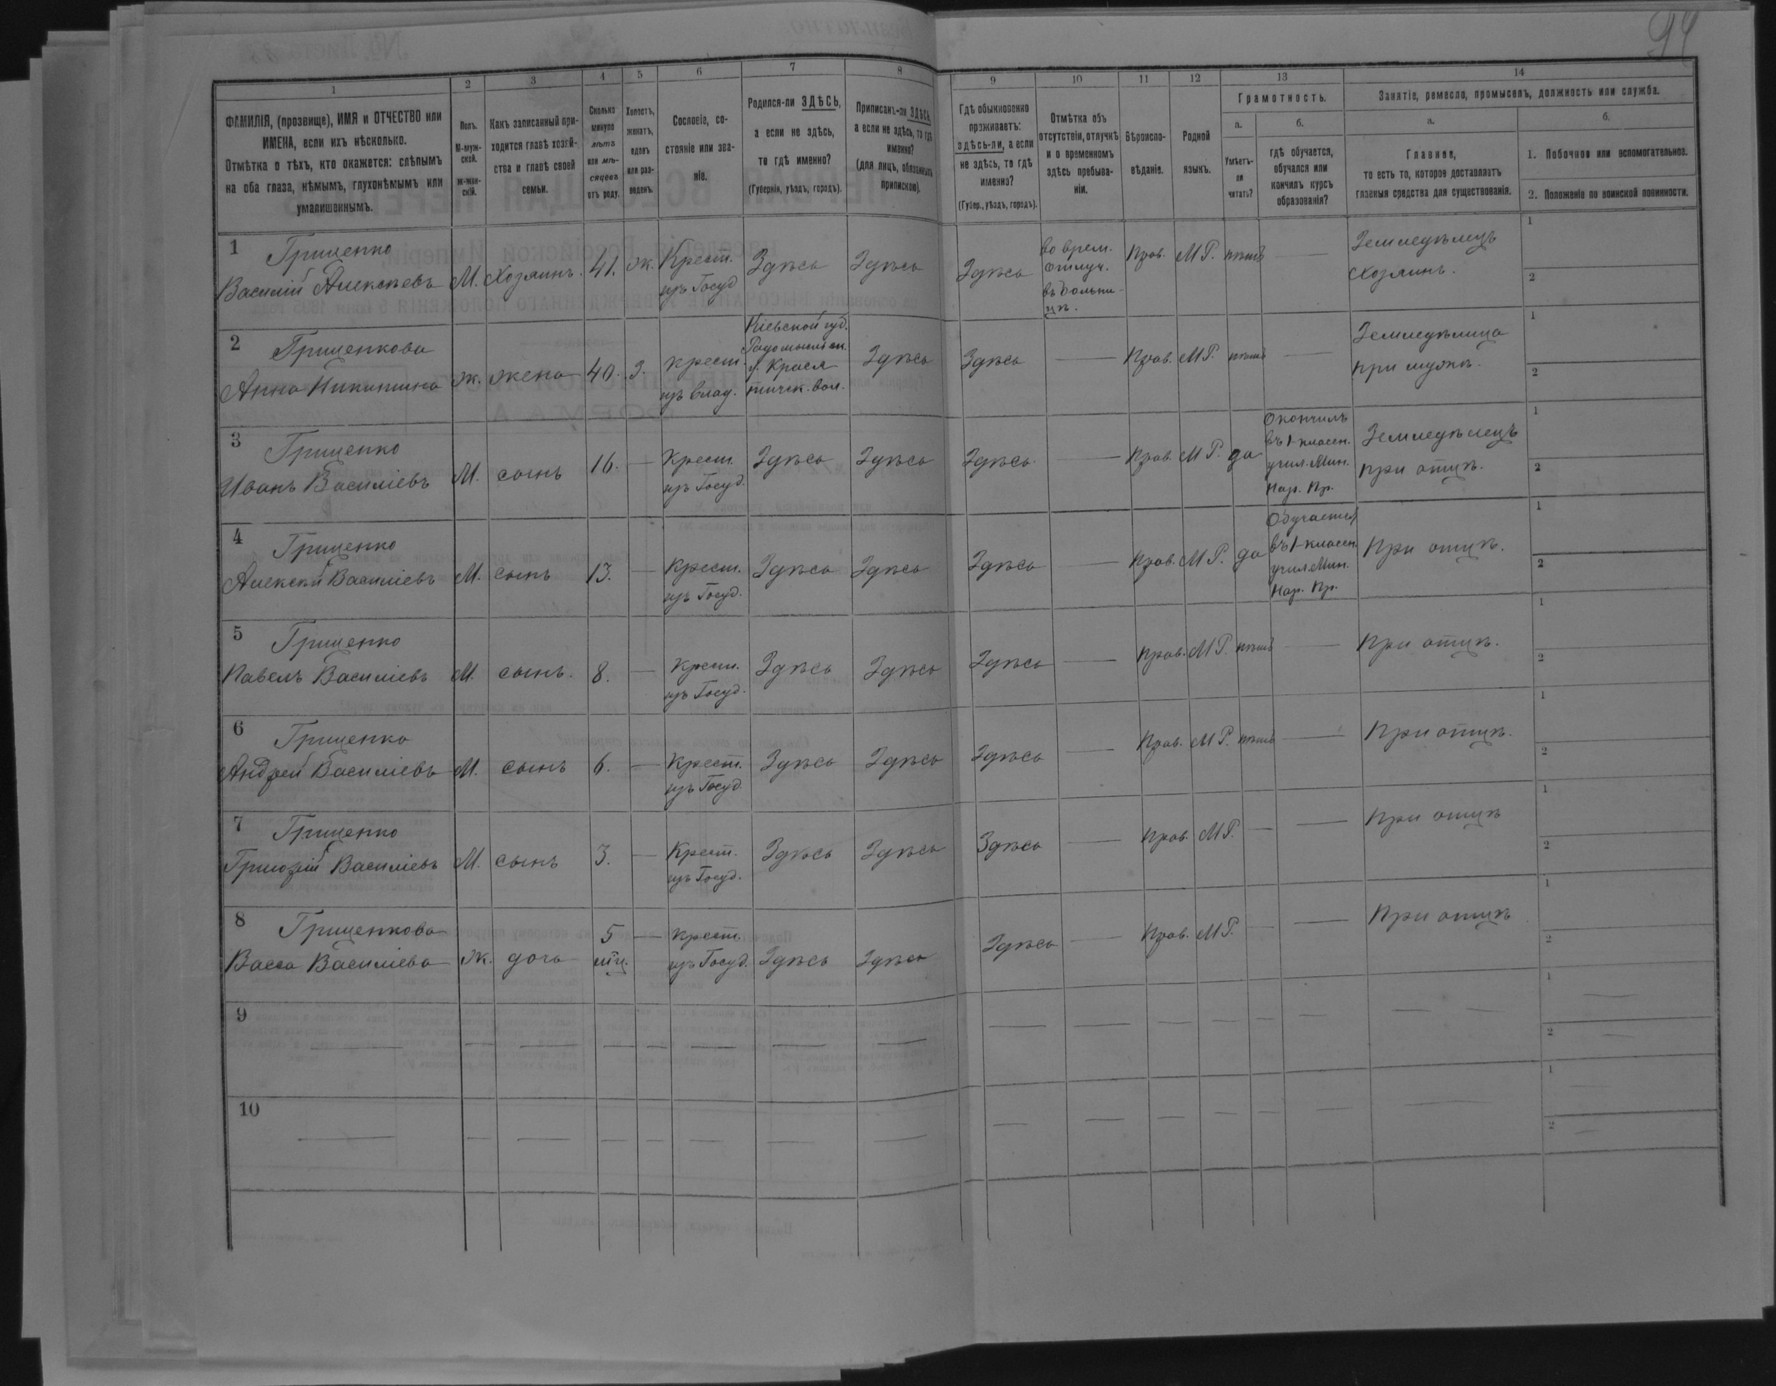 94
1
2
3
4
5
6
7
8
9
10
11
12
13
14
ФАМИЛІЯ, (прозвище), ИМЯ и ОТЧЕСТВО или
ИМЕНА, если ихъ нѣсколько.
Отмѣтка о тѣхъ, кто окажется: слѣпымъ
на оба глаза, нѣмымъ, глухонѣмымъ или
умалишоннымъ.
Полъ.
М-муж-
ской.
ж-жен-
скій.
Какъ записанный при-
ходится главѣ хозяй-
ства и главѣ своей
семьи.
Сколько
минуло
лѣтъ
или мѣ-
сяцевъ
отъ роду.
Холостъ,
женатъ,
вдовъ
или раз-
веденъ.
Сословіе, со-
стояніе или зва-
ніе.
Родился-ли ЗДѢСЬ,
а если не здѣсь,
то гдѣ именно?
(Губернія, уѣздъ, городъ).
Приписанъ-ли ЗДѢСЬ,
а если не здѣсь, то гдѣ
именно?
(для лицъ, обязанныхъ
припискою).
Гдѣ обыкновенно
проживаетъ:
здѣсь-ли, а если
не здѣсь, то гдѣ
именно?
(Губер., уѣздъ, городъ).
Отмѣтка объ
отсутствіи, отлучкѣ
и о временномъ
здѣсь пребыва-
ніи.
Вѣроиспо-
вѣданіе.
Родной
языкъ.
Грамотность.
а.
Умѣетъ-
ли
читать?
б.
гдѣ обучается,
обучался или
кончилъ курсъ
образованія?
Занятіе, ремесло, промыселъ, должность или служба.
а.
Главное,
то есть то, которое доставляетъ
главныя средства для существованія.
б.
1. Побочное или вспомогательное.
2. Положеніе по воинской повинности.
1 Гриценко
Василій Алексѣевъ М. Хозяинъ. 41. ж. Крест. изъ Госуд Здѣсь Здѣсь Здѣсь во врем. отлуч. въ больни-цѣ. Прав. М Р. нѣтъ — Земледѣлецъ хозяинъ. 1 2
2 Гриценкова
Анна Никитина ж. жена 40. з. крест. изъ влад. Кіевской губ. Здѣсь Здѣсь — Прав. М Р. нѣтъ — Земледѣлица при мужѣ. 1 2
3 Гриценко
Иванъ Василіевъ М. сынъ 16. — Крест. изъ Госуд. Здѣсь Здѣсь Здѣсь — Прав. М Р. да Окончилъ въ 1-классн. учил. Мин. Нар. Пр. Земледѣлецъ при отцѣ. 1 2
4 Гриценко
Алексѣй Василіевъ М. сынъ 13. — Крест. изъ Госуд. Здѣсь Здѣсь Здѣсь — Прав. М Р. да Обучается въ 1-классн. учил. Мин. Нар. Пр. При отцѣ. 1 2
5 Гриценко
Павелъ Василіевъ М. сынъ. 8. — Крест. изъ Госуд. Здѣсь Здѣсь Здѣсь — Прав. М Р. нѣтъ — При отцѣ. 1 2
6 Гриценко
Андрей Василіевъ М. сынъ 6. — Крест. изъ Госуд. Здѣсь Здѣсь Здѣсь — Прав. М Р. нѣтъ — При отцѣ. 1 2
7 Гриценко
Григорій Василіевъ М. сынъ 3. — Крест. изъ Госуд. Здѣсь Здѣсь Здѣсь — Прав. М Р. — — При отцѣ 1 2
8 Гриценкова
Васса Василіева Ж. дочь 5 мц. — крест. изъ Госуд. Здѣсь Здѣсь Здѣсь — Прав. М Р. — — При отцѣ 1 2
9 1 2
10 1 2